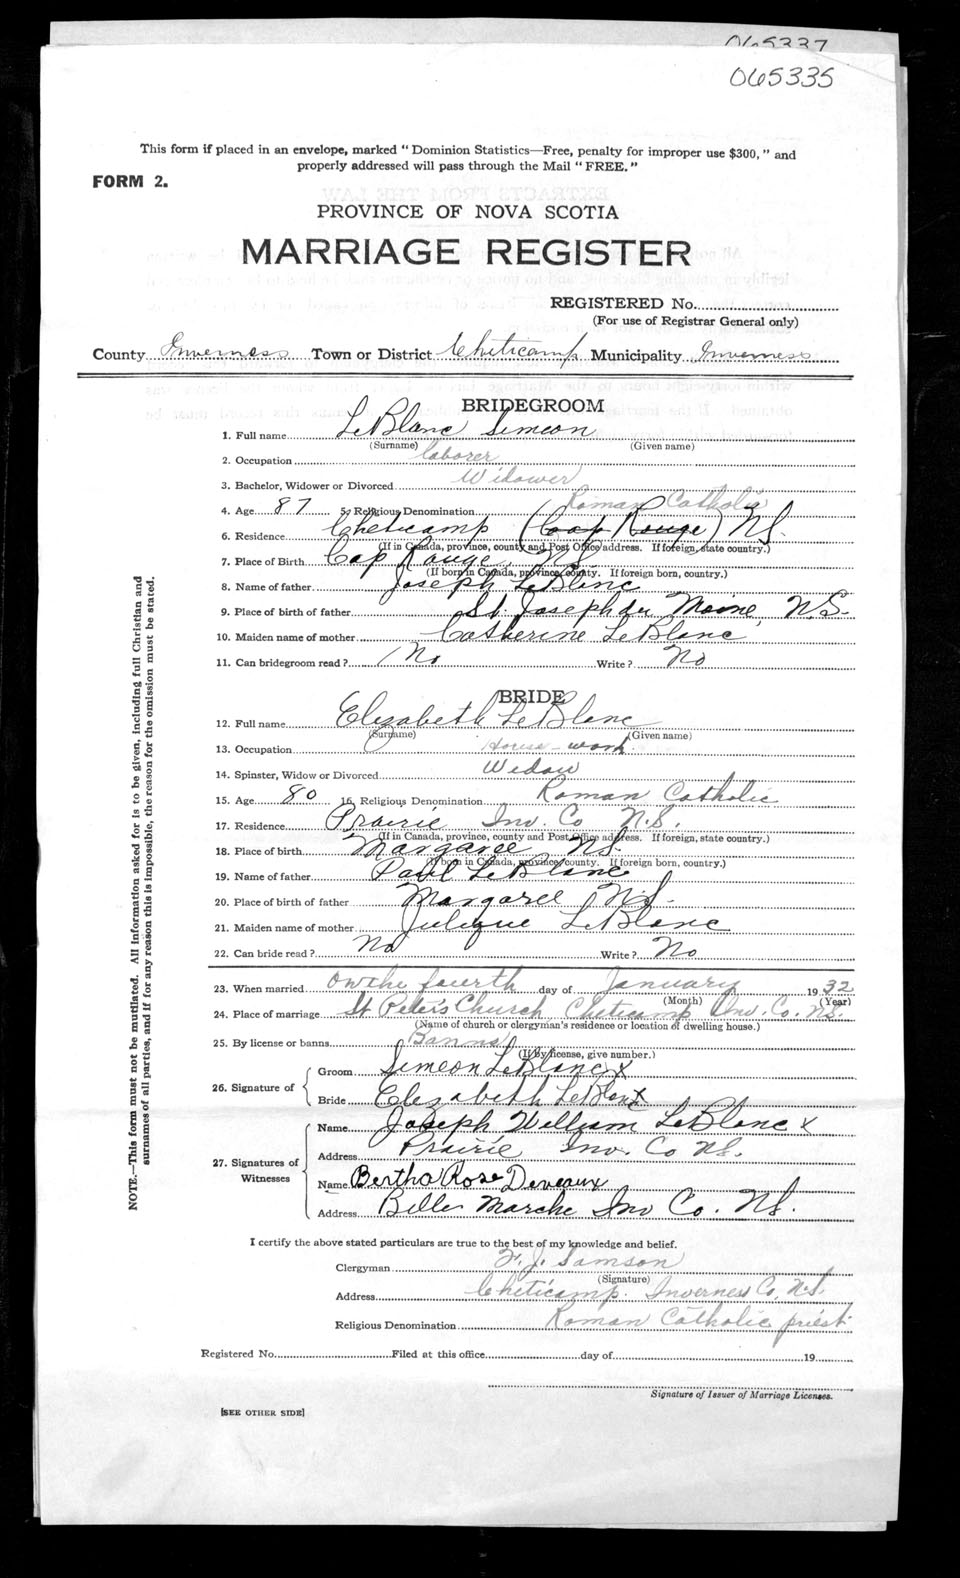 065337
065335
This form if placed in an envelope, marked " Dominion Statistics—Free, penalty for improper use $300, " and
properly addressed will pass through the Mail " FREE. "
FORM 2.
PROVINCE OF NOVA SCOTIA
MARRIAGE REGISTER
REGISTERED No.
(For use of Registrar General only)
County Inverness Town or District Cheticamp Municipality Inverness
BRIDEGROOM
1. Full name LeBlanc Simeon
(Surname) (Given name)
2. Occupation laborer
3. Bachelor, Widower or Divorced Widower
4. Age 87 5. Religious Denomination Roman Catholic
6. Residence Cheticamp (Cap Rouge) N.S.
(If in Canada, province, county and Post Office address. If foreign, state country.)
7. Place of Birth Cap Rouge, N.S.
(If born in Canada, province, county. If foreign born, country.)
8. Name of father Joseph LeBlanc
9. Place of birth of father St. Joseph du Moine, N.S.
10. Maiden name of mother Catherine LeBlanc
11. Can bridegroom read ? No Write ? No
BRIDE
12. Full name Elizabeth LeBlanc
(Surname) (Given name)
13. Occupation House-work
14. Spinster, Widow or Divorced Widow
15. Age 80 16. Religious Denomination Roman Catholic
17. Residence Prairie Inv. Co N.S.
(If in Canada, province, county and Post Office address. If foreign, state country.)
18. Place of birth Margaree N.S.
(If born in Canada, province, county. If foreign born, country.)
19. Name of father Paul LeBlanc
20. Place of birth of father Margaree N.S.
21. Maiden name of mother Julique LeBlanc
22. Can bride read ? No Write ? No
23. When married on the fourth day of January 1932
(Month) (Year)
24. Place of marriage St Peter's Church Cheticamp Inv. Co. N.S.
(Name of church or clergyman's residence or location of dwelling house.)
25. By license or banns Banns
(If by license, give number.)
26. Signature of
Groom Simeon LeBlanc X
Bride Elizabeth LeBlanc X
27. Signatures of Witnesses
Name Joseph William LeBlanc X
Address Prairie Inv. Co N.S.
Name Bertha Rose Deveaux
Address Belle Marche Inv Co. N.S.
I certify the above stated particulars are true to the best of my knowledge and belief.
Clergyman F. J. Samson
(Signature)
Address Cheticamp. Inverness Co, N.S.
Religious Denomination Roman Catholic priest
Registered No. Filed at this office day of 19
Signature of Issuer of Marriage Licenses.
[SEE OTHER SIDE]
NOTE.—This form must not be mutilated. All information asked for is to be given, including full Christian and
surnames of all parties, and if for any reason this is impossible, the reason for the omission must be stated.